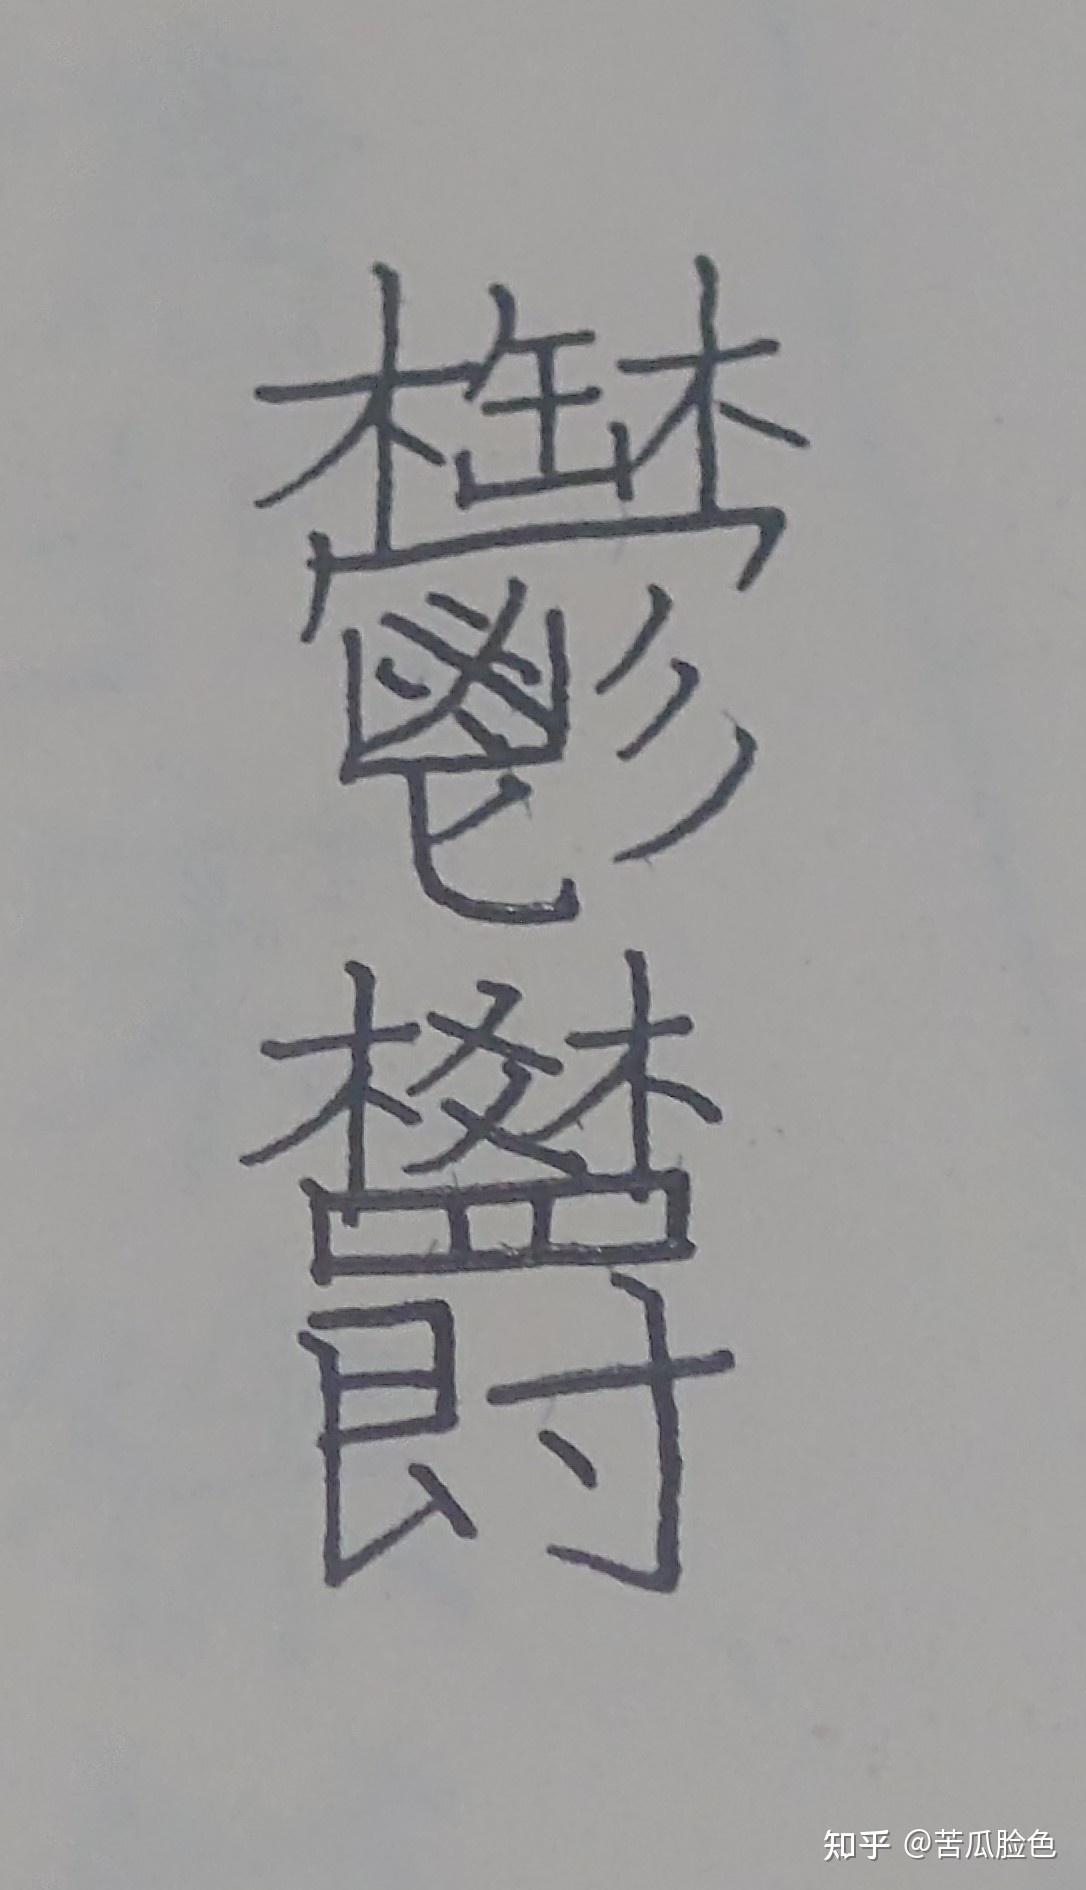 鬱
欝
知乎 @苦瓜脸色